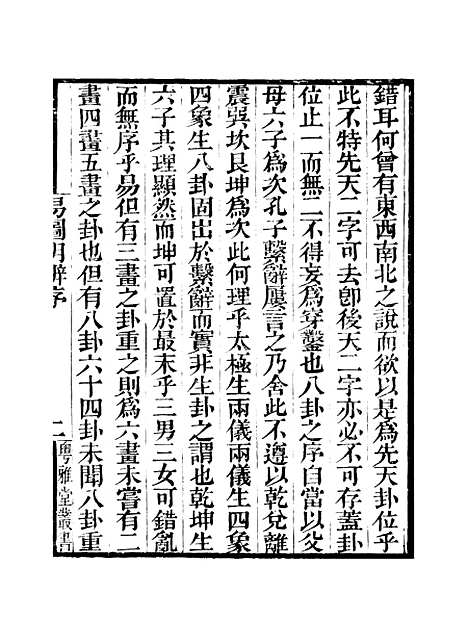 錯耳何曾有東西南北之說而欲以是爲先天卦位乎
此不特先天二字可去卽後天二字亦必不可存蓋卦
位止一而無二不得妄爲穿鑿也八卦之序自當以父
母六子爲次孔子繫辭屢言之乃舍此不遵以乾兌離
震巽坎艮坤爲次此何理乎太極生兩儀兩儀生四象
四象生八卦固出於繫辭而實非生卦之謂也乾坤生
六子其理顯然而坤可置於最末乎三男三女可錯亂
而無序乎易但有三畫之卦重之則爲六畫未嘗有二
畫四畫五畫之卦也但有八卦六十四卦未聞八卦重
易圖明辨序
二
粵雅堂叢書